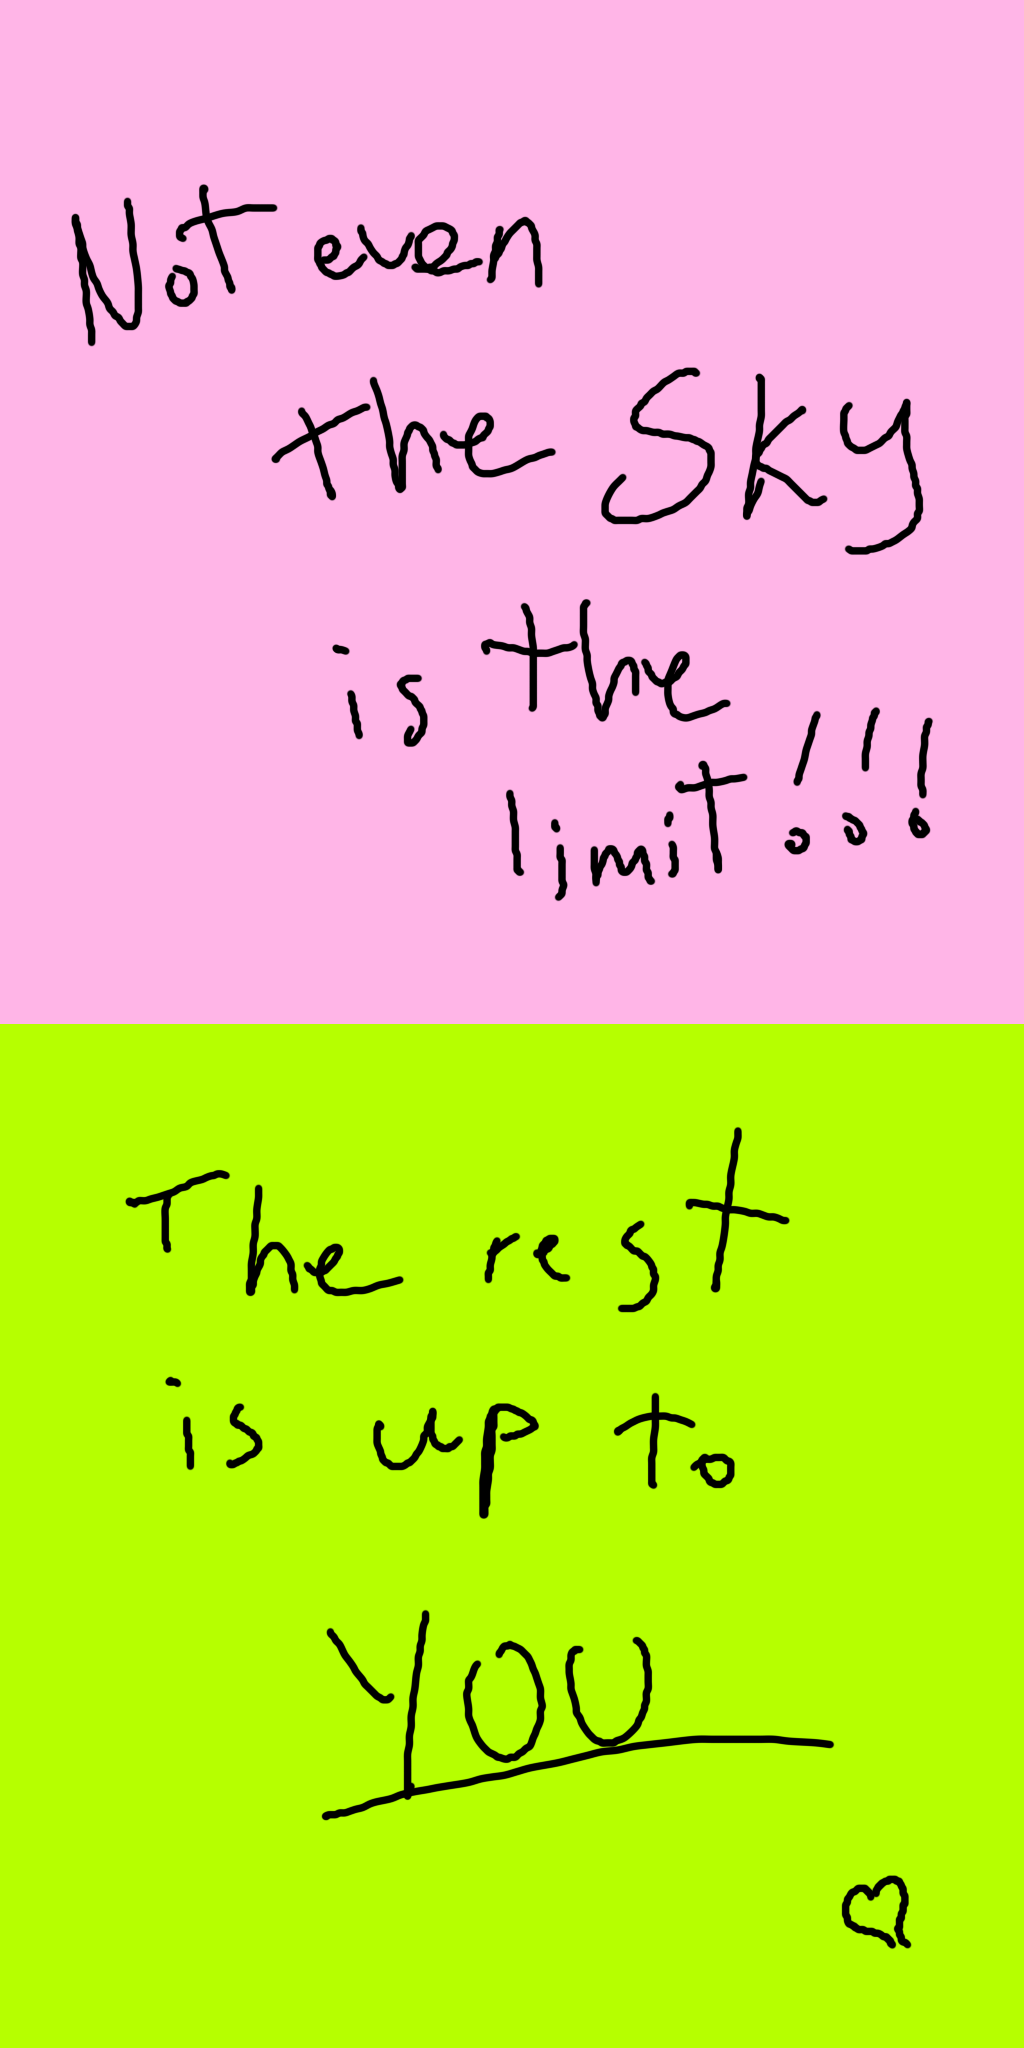 Not even
the Sky
is the
limit!!!
The rest
is up to
YOU